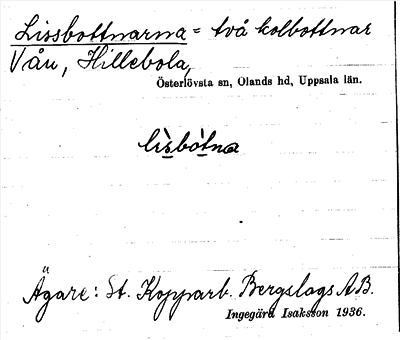 Lissbottnarna = två kolbottnar
Vån, Hillebola,
Österlövsta sn, Olands hd, Uppsala län.
lìsbòtna
Ägare: St. Kopparb. Bergslags A.B.
Ingegärd Isaksson 1936.